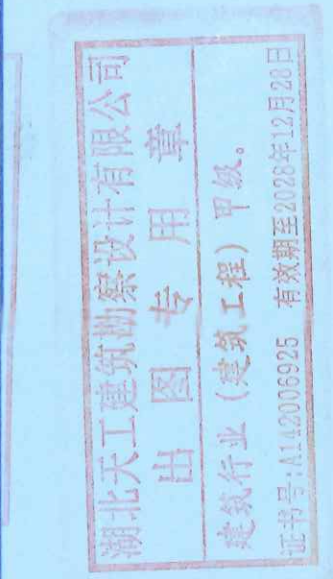 湖北天工建筑勘察设计有限公司
出图专用章
建筑行业（建筑工程）甲级。
证书号:A142006925 有效期至2028年12月28日